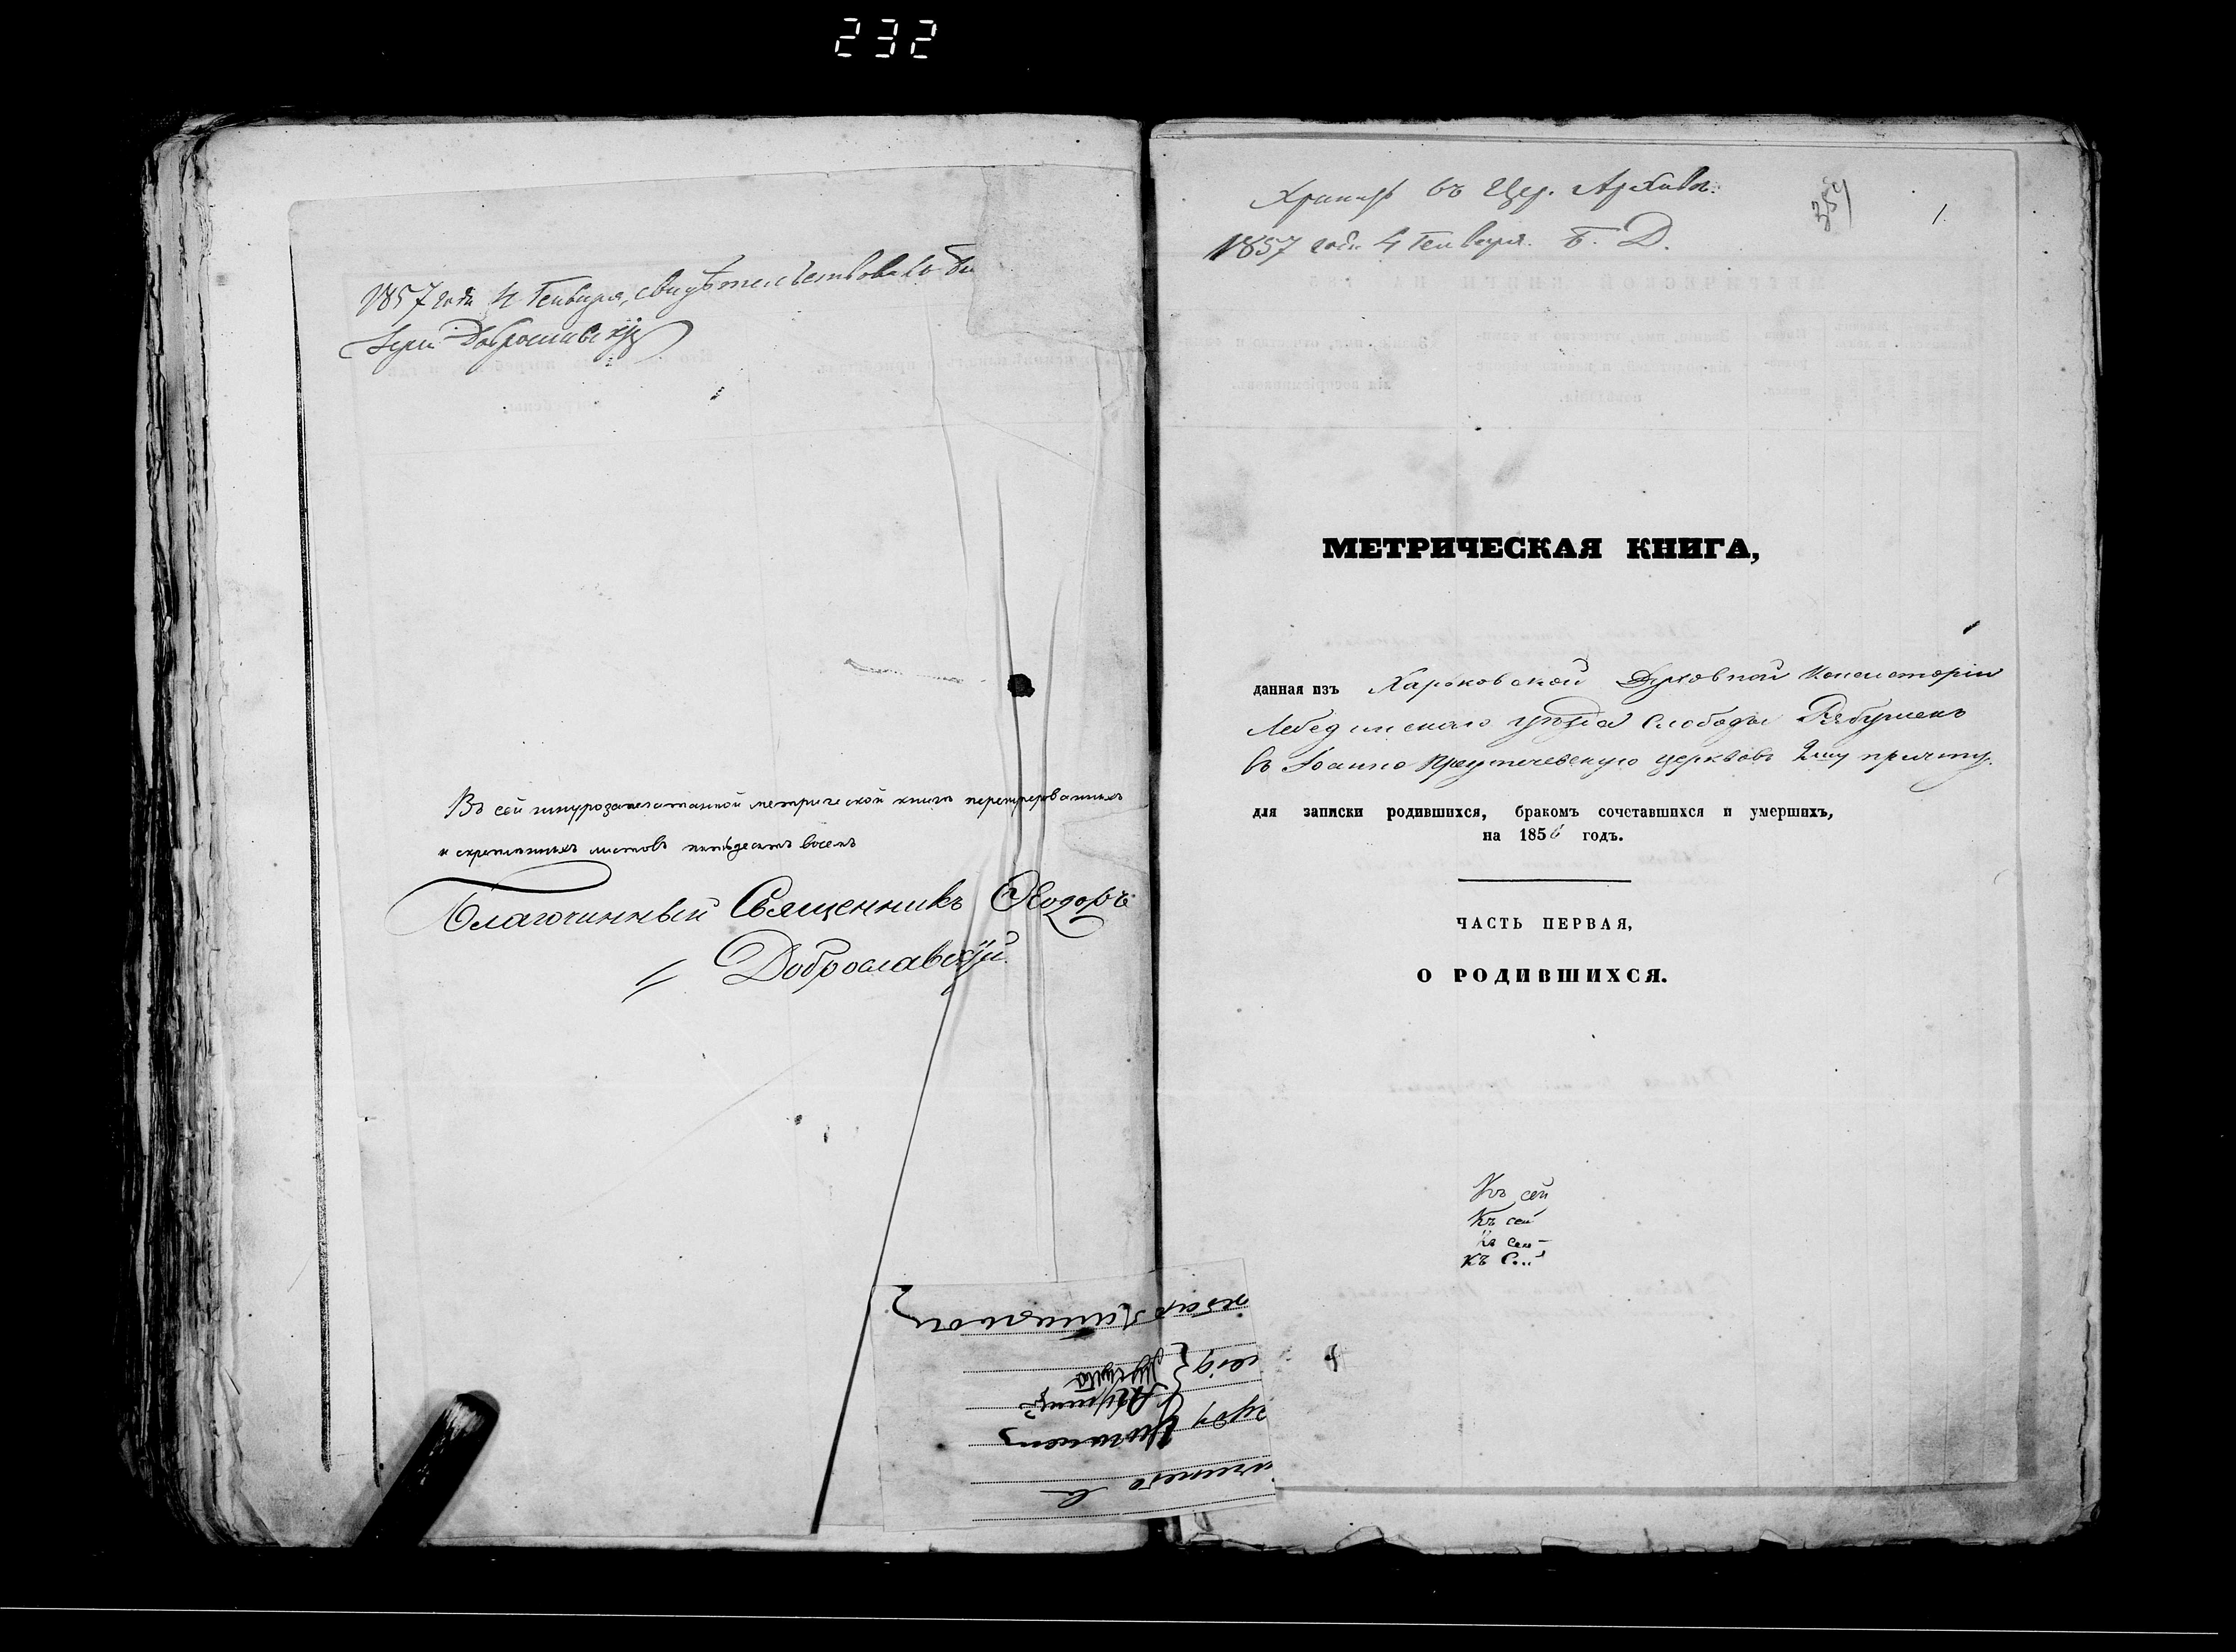 232
1857 года 4 Генваря, свидетельствовалъ Бл
Іерей Доброславскій
Въ сей шнурозапечатанной метрической книге перенумерованныхъ
и скрепленныхъ листовъ пятьдесятъ восемь
Благочинный Священникъ Ѳеодоръ
Доброславскій.
Хранить въ Цер. Архиве.
1857 года 4 Генваря. Б. Д.
354
1.
МЕТРИЧЕСКАЯ КНИГА,
данная изъ Харьковской Духовной Консисторіи
Лебединскаго уезда Слободы Рябушекъ
въ Іоанно Предтечевскую церковь 2му причту.
для записки родившихся, бракомъ сочетавшихся и умершихъ,
на 1856 годъ.
ЧАСТЬ ПЕРВАЯ,
О РОДИВШИХСЯ.
Къ сей
Къ сей
Къ сей
Къ Сей